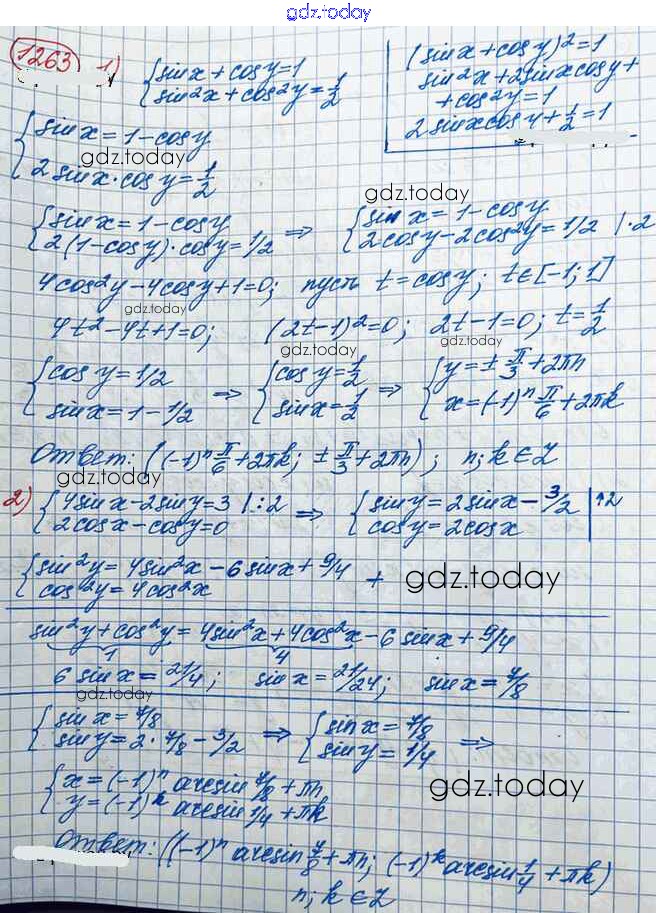 gdz.today
1263 1) { sinx + cosy = 1
sin²x + cos²y = 1/2
(sinx + cosy)² = 1
sin²x + 2sinxcosy +
+ cos²y = 1
2sinxcosy + 1/2 = 1
{ sinx = 1 - cosy
gdz.today
2 sinx · cosy = 1/2
gdz.today
{ sinx = 1 - cosy
2(1 - cosy) · cosy = 1/2 ⇒ { sinx = 1 - cosy
2cosy - 2cos²y = 1/2 | · 2
4cos²y - 4cosy + 1 = 0; пусть t = cosy; t ∈ [-1; 1]
gdz.today
4t² - 4t + 1 = 0; (2t - 1)² = 0; 2t - 1 = 0; t = 1/2
gdz.today
{ cosy = 1/2
sinx = 1 - 1/2 ⇒ { cosy = 1/2
sinx = 1/2 ⇒ { y = ± π/3 + 2πn
x = (-1)ⁿ π/6 + 2πk
Ответ: ((-1)ⁿ π/6 + 2πk; ± π/3 + 2πn); n; k ∈ Z
gdz.today
2) { 4sinx - 2siny = 3 | : 2
2cosx - cosy = 0 ⇒ { siny = 2sinx - 3/2
cosy = 2cosx | ↑2
{ sin²y = 4sin²x - 6sinx + 9/4
cos²y = 4cos²x +
gdz.today
sin²y + cos²y = 4sin²x + 4cos²x - 6sinx + 9/4
1 4
6 sinx = 21/4; sinx = 21/24; sinx = 7/8
gdz.today
{ sinx = 7/8
siny = 2 · 7/8 - 3/2 ⇒ { sinx = 7/8
siny = 1/4 ⇒
{ x = (-1)ⁿ arcsin 7/8 + πn
y = (-1)ᵏ arcsin 1/4 + πk
gdz.today
Ответ: ((-1)ⁿ arcsin 7/8 + πn; (-1)ᵏ arcsin 1/4 + πk)
n; k ∈ Z